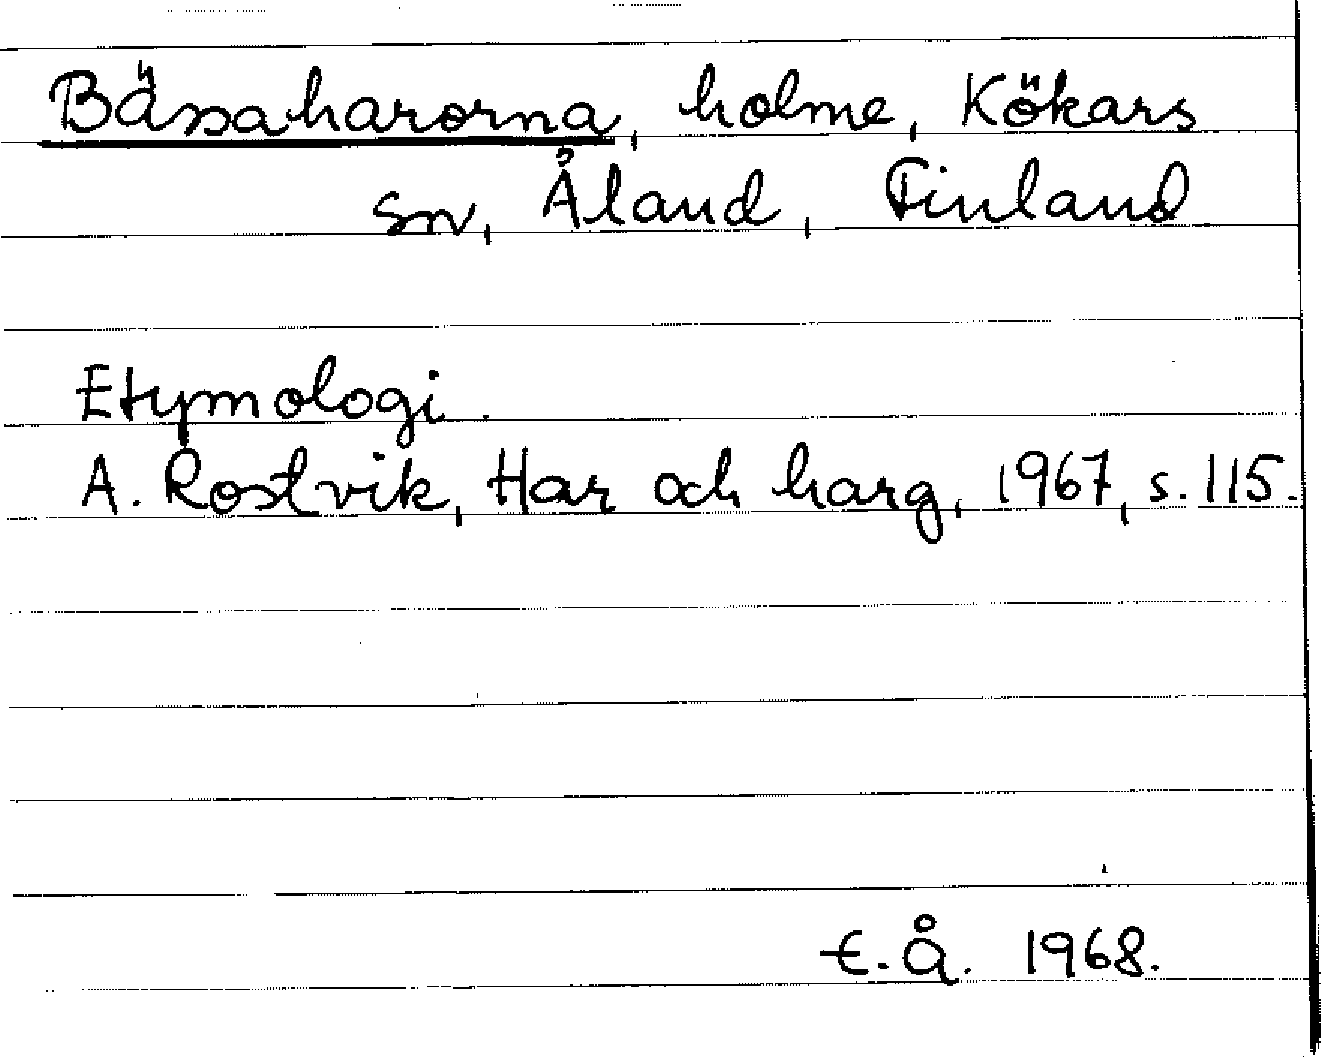 Bässaharorna, holme, Kökars
sn, Åland, Finland
Etymologi.
A. Rostvik, Har och harg, 1967, s. 115.
E.Å. 1968.